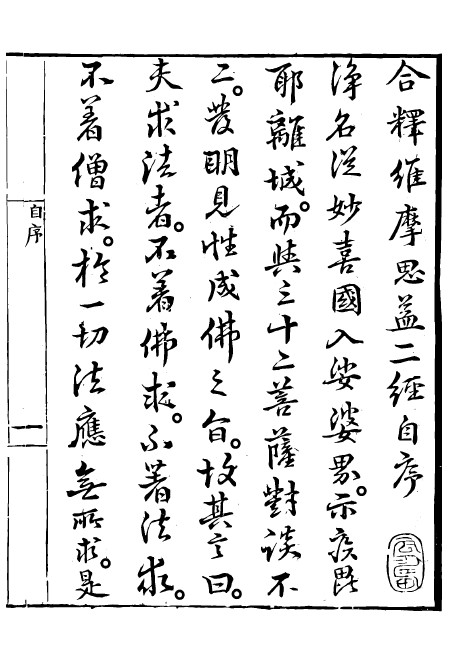 合釋維摩思益二經自序
淨名從妙喜國入娑婆界。示疾毘
耶離城。而與三十二菩薩對談不
二。發明見性成佛之旨。故其言曰。
夫求法者。不著佛求。不著法求。
不著僧求。於一切法應無所求。是
自序
一